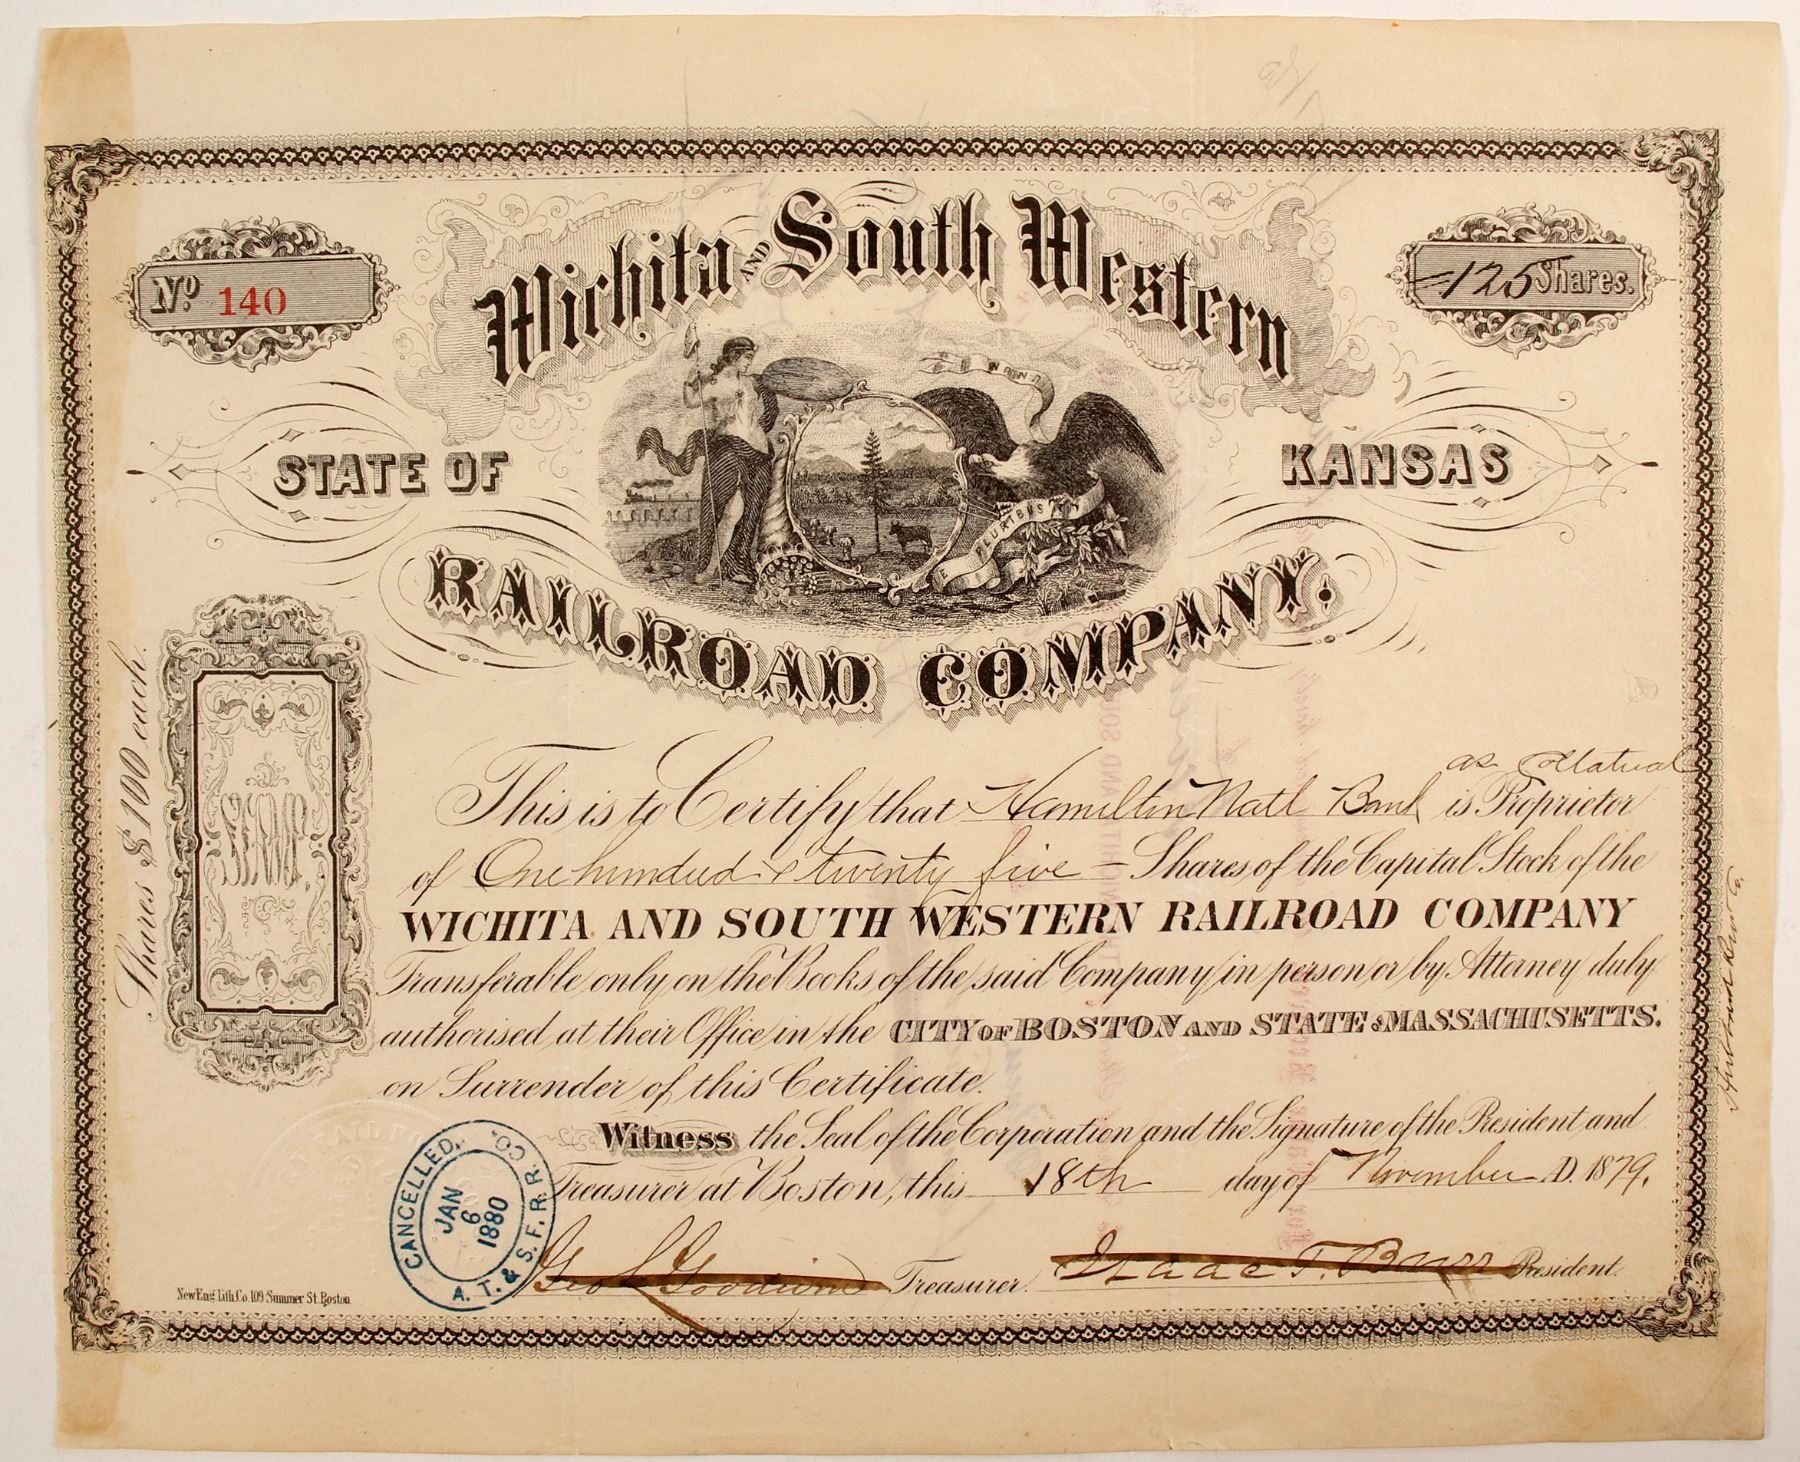 Wichita AND South Western
No 140
125 Shares.
STATE OF
KANSAS
E PLURIBUS
RAILROAD COMPANY.
Shares $100 each.
as Collateral
This is to Certify that Hamilton Natl Bank is Proprietor
of One hundred & twenty five — Shares of the Capital Stock of the
WICHITA AND SOUTH WESTERN RAILROAD COMPANY
Transferable only on the Books of the said Company in person or by Attorney duly
authorised at their Office in the CITY OF BOSTON AND STATE OF MASSACHUSETTS.
on Surrender of this Certificate.
Witness the Seal of the Corporation and the Signature of the President and
Treasurer at Boston, this 18th day of November A.D. 1879.
CANCELLED.
JAN
6
1880
A. T. & S. F. R. R. CO.
Treasurer.
Isaac T. Burr President.
New Eng Lith. Co. 109 Summer St. Boston